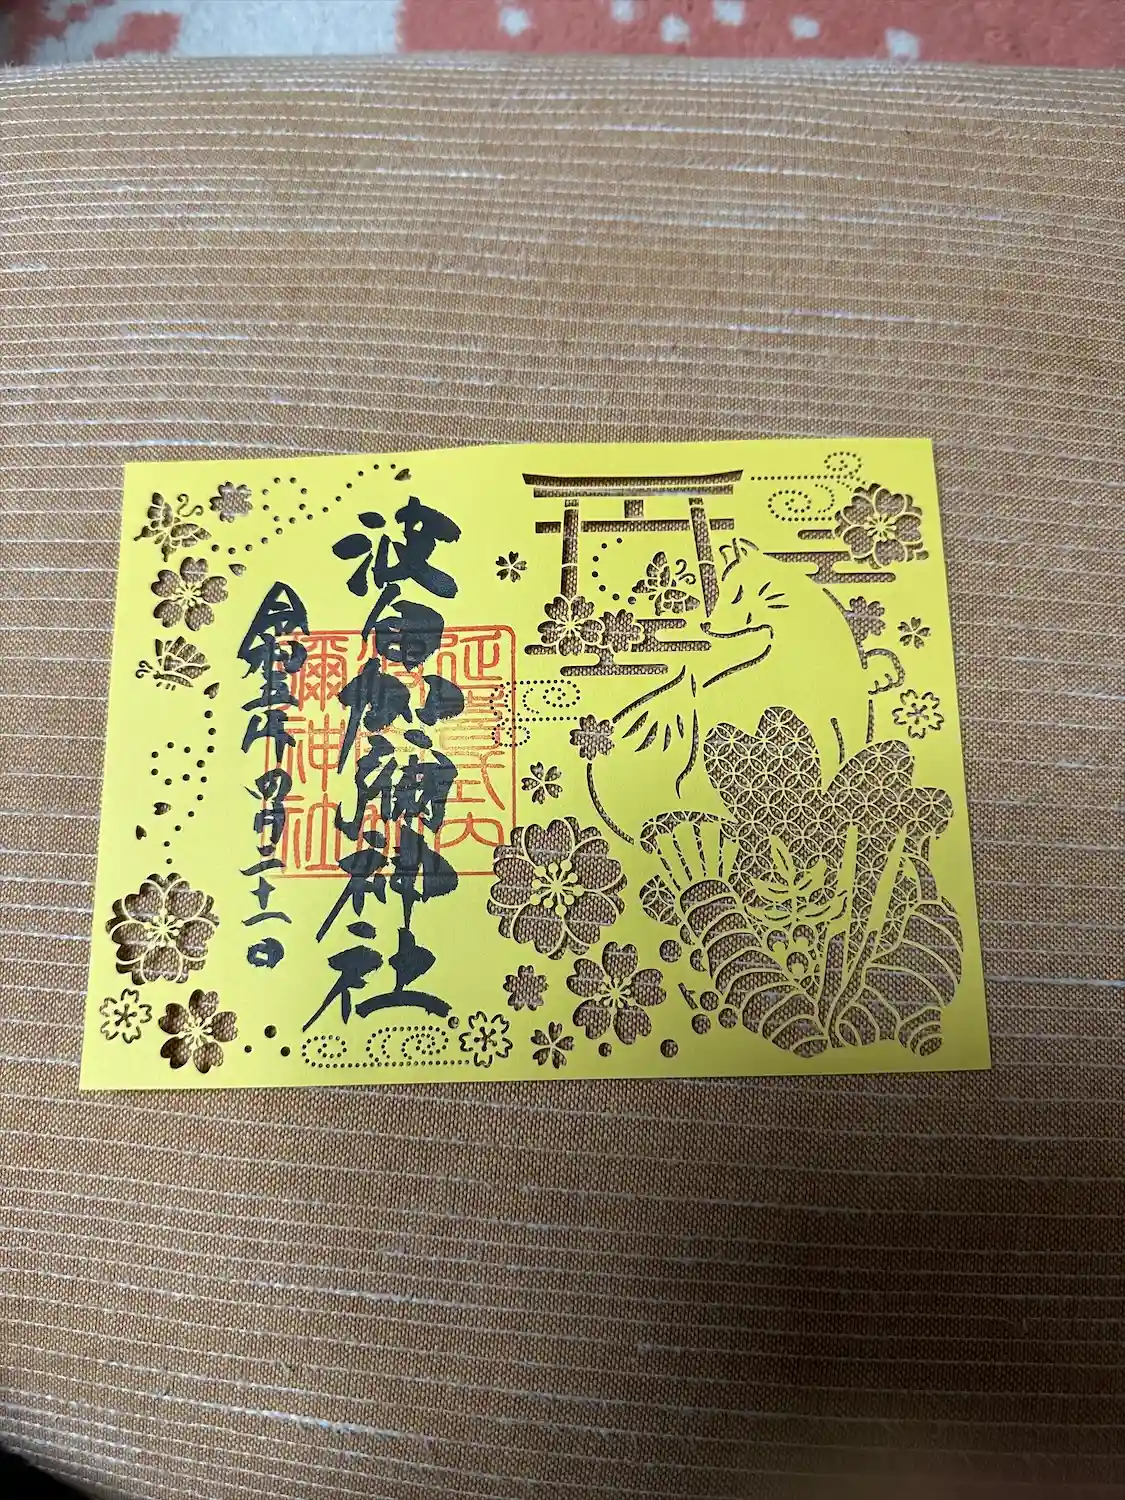 波自加彌神社
令和五年四月二十一日
延喜式内
彌神社